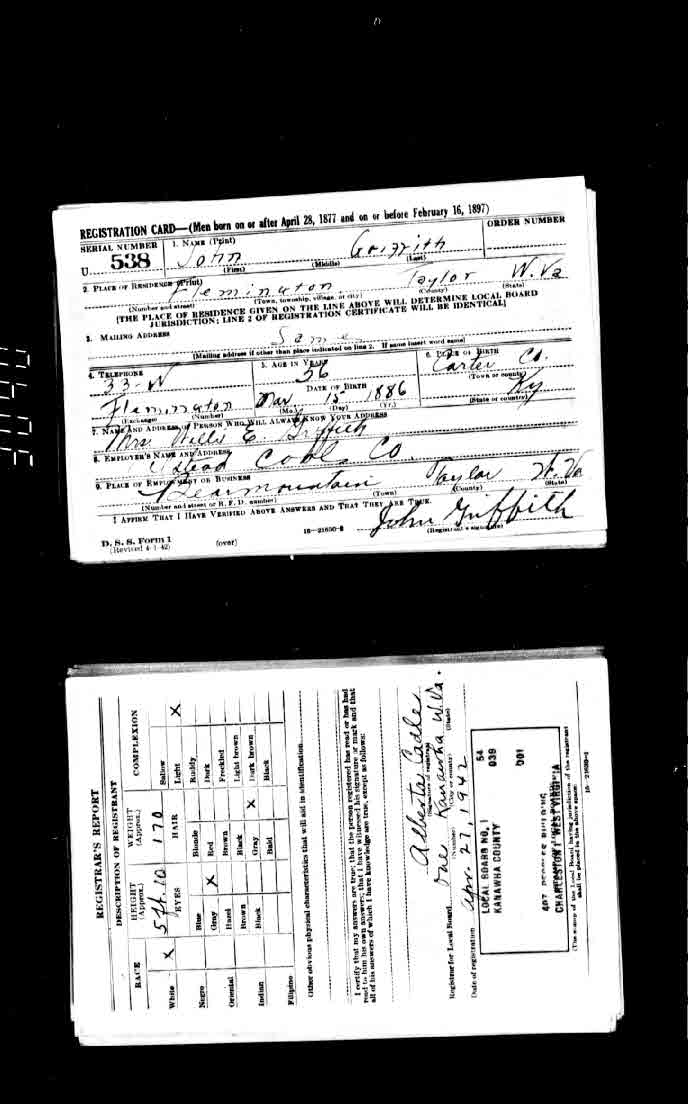 REGISTRATION CARD—(Men born on or after April 28, 1877 and on or before February 16, 1897)
SERIAL NUMBER
1. NAME (Print)
ORDER NUMBER
U. 538
John Griffith
(First) (Middle) (Last)
2. PLACE OF RESIDENCE (Print)
Flemington Taylor W. Va
(Number and street) (Town, township, village, or city) (County) (State)
[THE PLACE OF RESIDENCE GIVEN ON THE LINE ABOVE WILL DETERMINE LOCAL BOARD
JURISDICTION; LINE 2 OF REGISTRATION CERTIFICATE WILL BE IDENTICAL]
3. MAILING ADDRESS
Same
[Mailing address if other than place indicated on line 2. If same insert word same]
4. TELEPHONE
5. AGE IN YEARS
6. PLACE OF BIRTH
33-W
56
Carter Co.
DATE OF BIRTH
(Town or county)
Flemington
Mar 15 1886
Ky
(Exchange) (Number)
(Mo.) (Day) (Yr.)
(State or country)
7. NAME AND ADDRESS OF PERSON WHO WILL ALWAYS KNOW YOUR ADDRESS
Mrs. Willie E. Griffith
8. EMPLOYER'S NAME AND ADDRESS
Coal Co
9. PLACE OF EMPLOYMENT OR BUSINESS
Bearmountain Taylor W. Va
(Number and street or R. F. D. number) (Town) (County) (State)
I AFFIRM THAT I HAVE VERIFIED ABOVE ANSWERS AND THAT THEY ARE TRUE.
John Griffith
D. S. S. Form 1
(Revised 4-1-42)
(over)
16—21630-2
(Registrant's signature)
REGISTRAR'S REPORT
DESCRIPTION OF REGISTRANT
RACE
HEIGHT (Approx.)
WEIGHT (Approx.)
COMPLEXION
5 ft. 10
170
Sallow
White X
EYES
HAIR
Light X
Negro
Blue
Blonde
Ruddy
Gray X
Red
Dark
Oriental
Hazel
Brown
Freckled
Brown
Black
Light brown
Indian
Black
Gray X
Dark brown
Bald
Black
Filipino
Other obvious physical characteristics that will aid in identification
I certify that my answers are true; that the person registered has read or has had
read to him his own answers; that I have witnessed his signature or mark and that
all of his answers of which I have knowledge are true, except as follows:
Alberta Cadle
(Signature of registrar)
Registrar for Local Board One Kanawha W. Va.
(Number) (City or county) (State)
Date of registration Apr. 27, 1942
LOCAL BOARD NO. 1 54
KANAWHA COUNTY 039
001
CHARLESTON 1 WEST VIRGINIA
(The stamp of the Local Board having jurisdiction of the registrant
shall be placed in the above space)